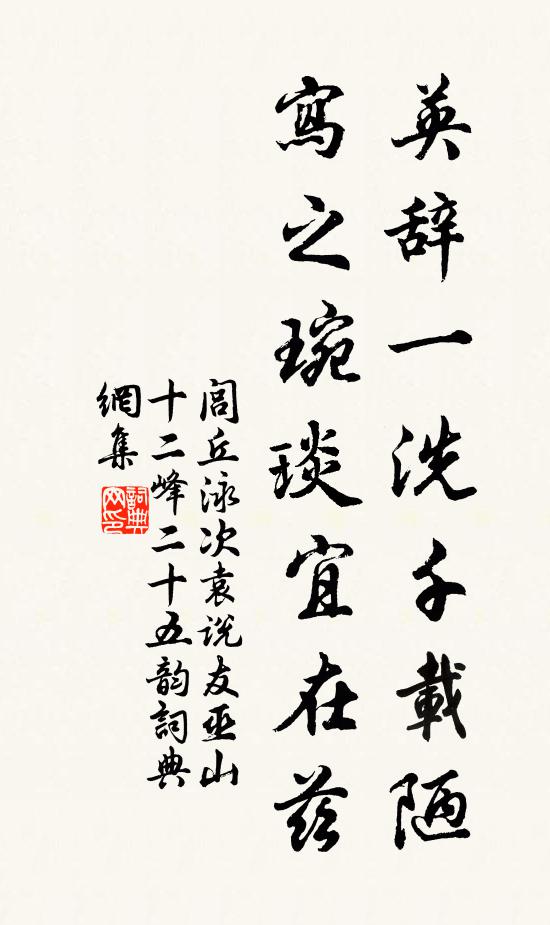 英辞一洗千載陋
寫之琬琰宜在兹
閭丘泳次袁说友巫山
十二峰二十五韵詞典
網集
詞典
网印